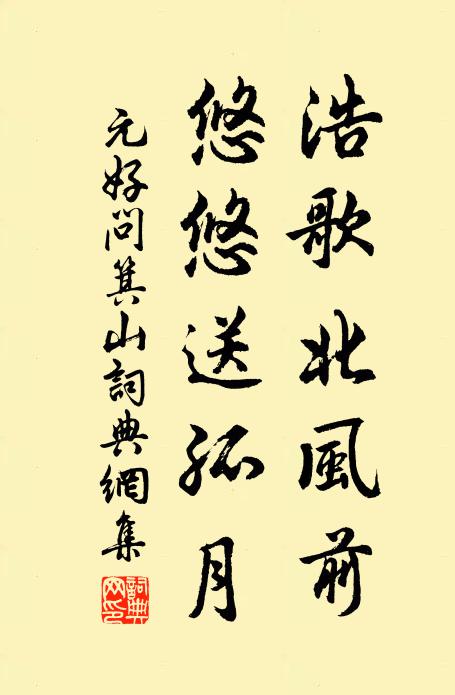 浩歌北風前
悠悠送孤月
元好問箕山詞典網集
詞典網印